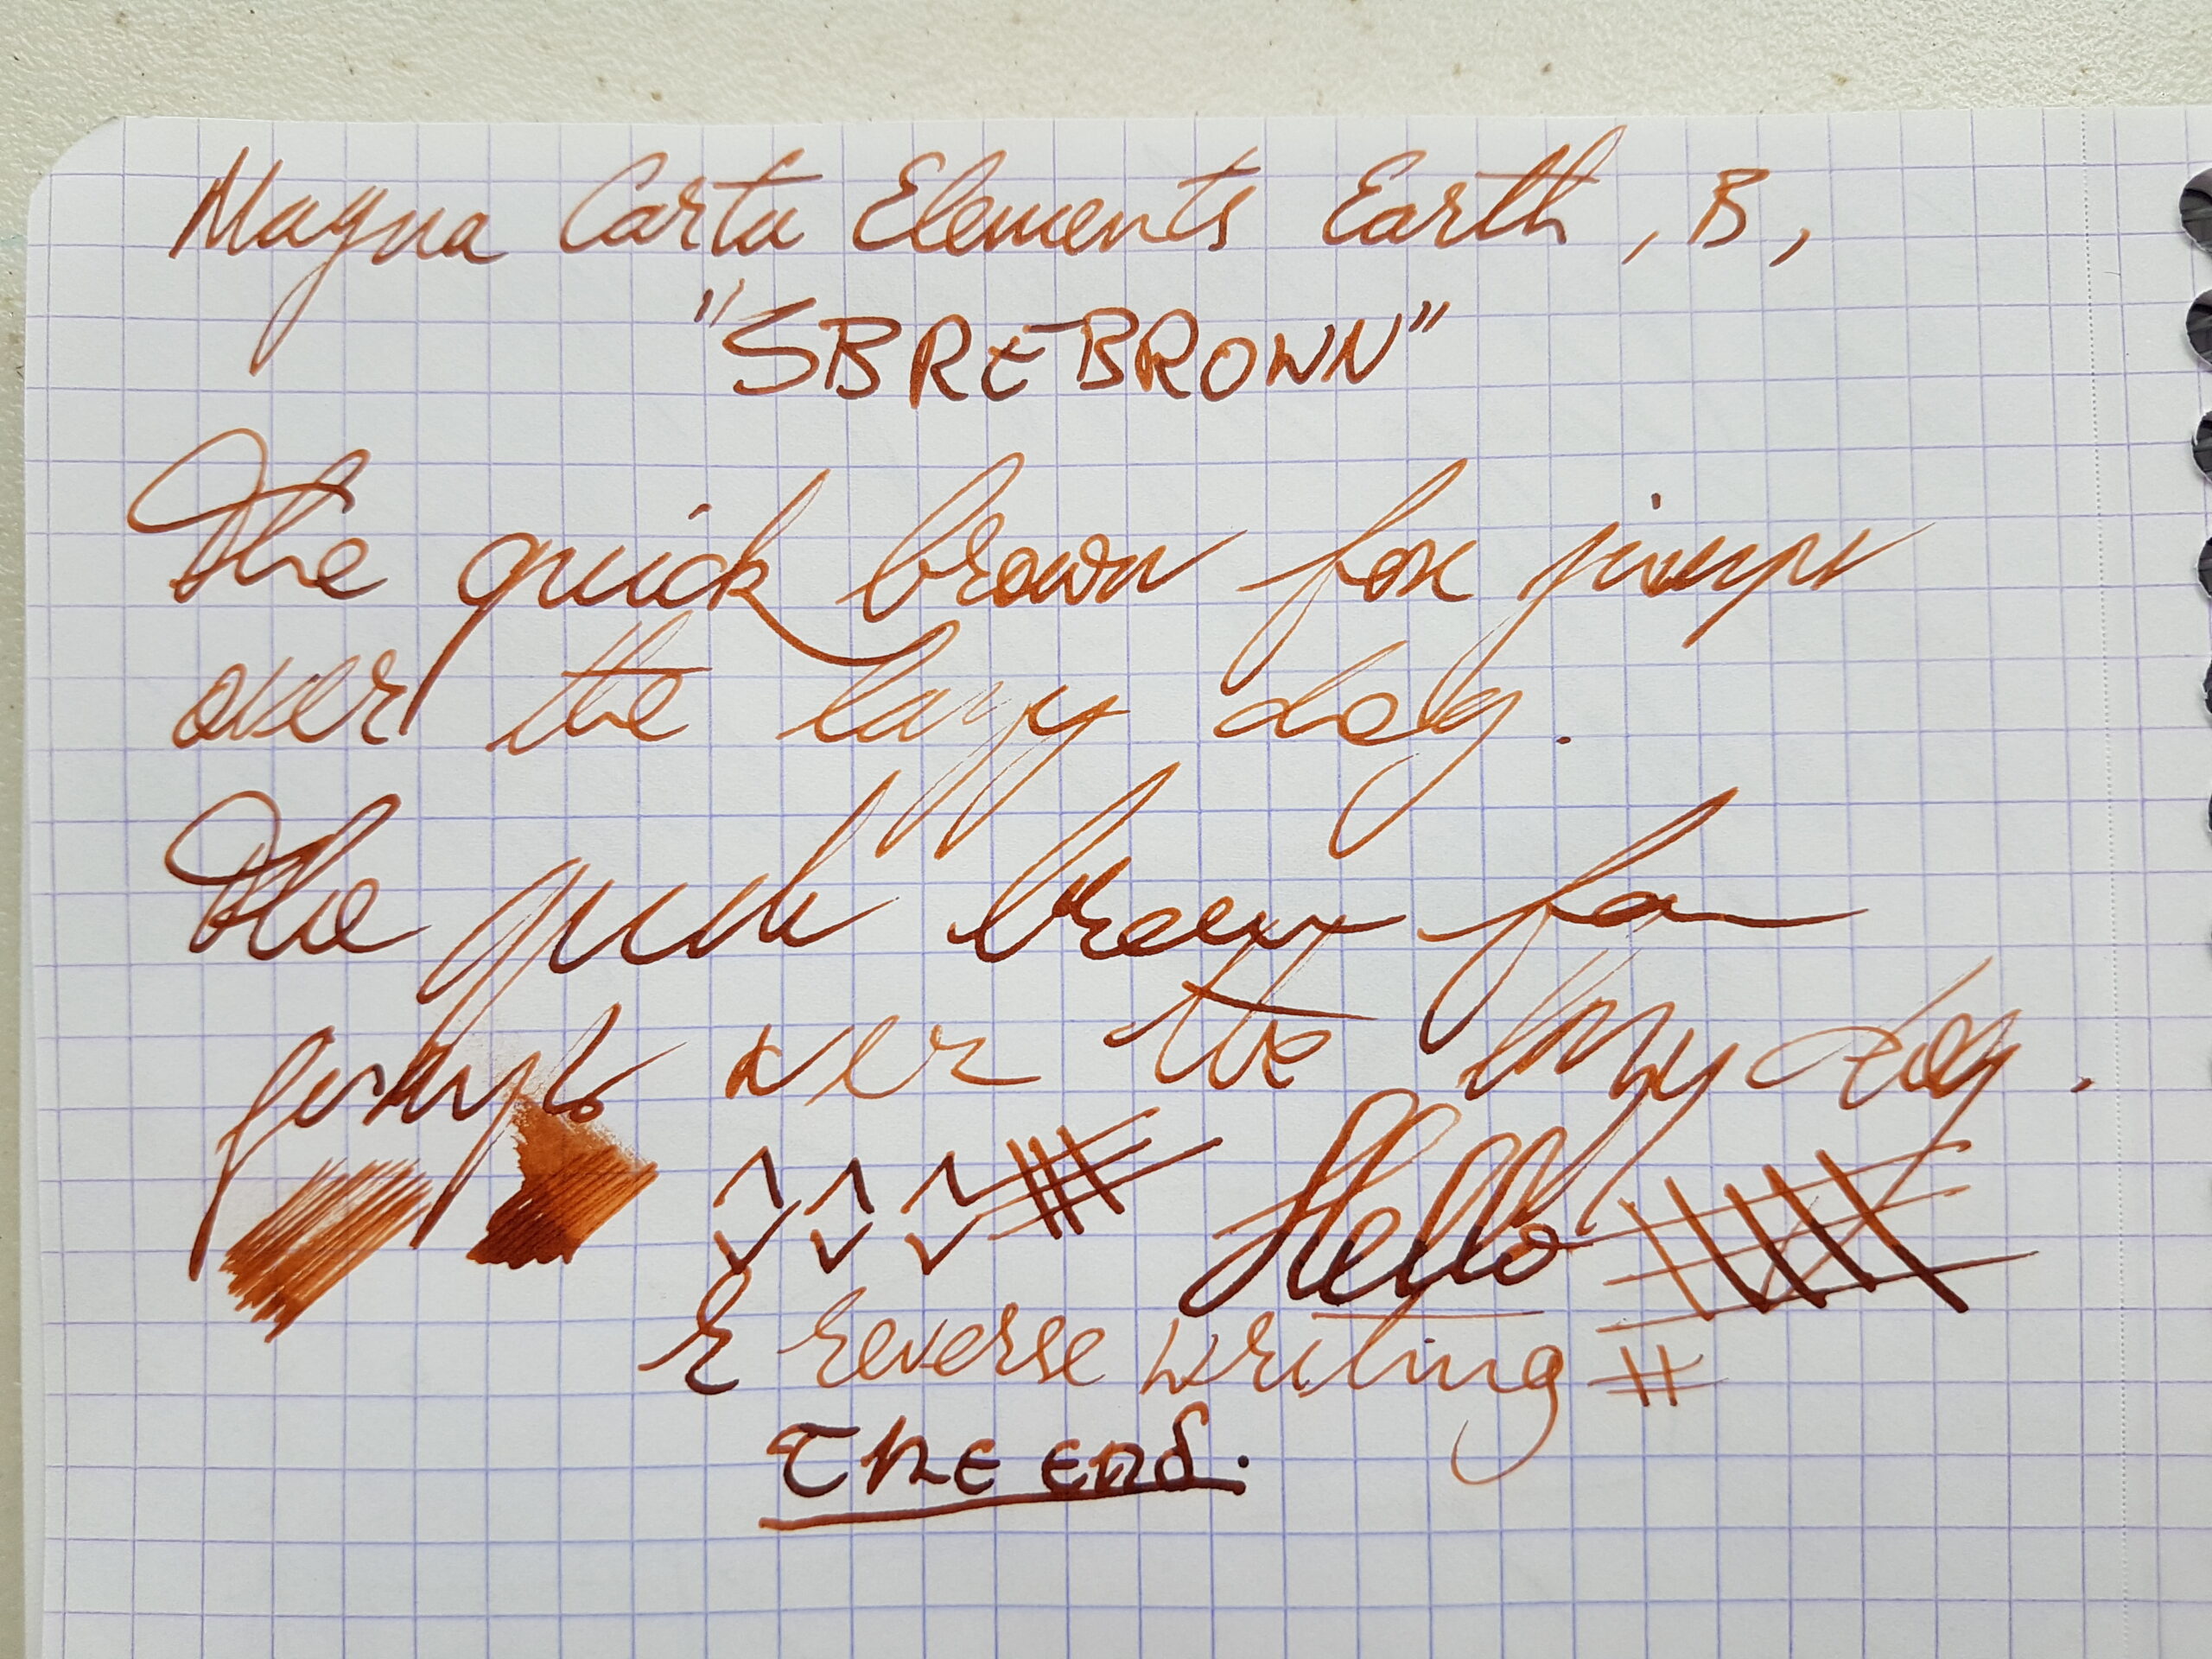 Magna Carta Elements Earth, B,
"SBREBROWN"
The quick brown fox jumps
over the lazy dog.
The quick brown fox
jumps over the lazy dog.
Hello
& reverse writing #
The end.